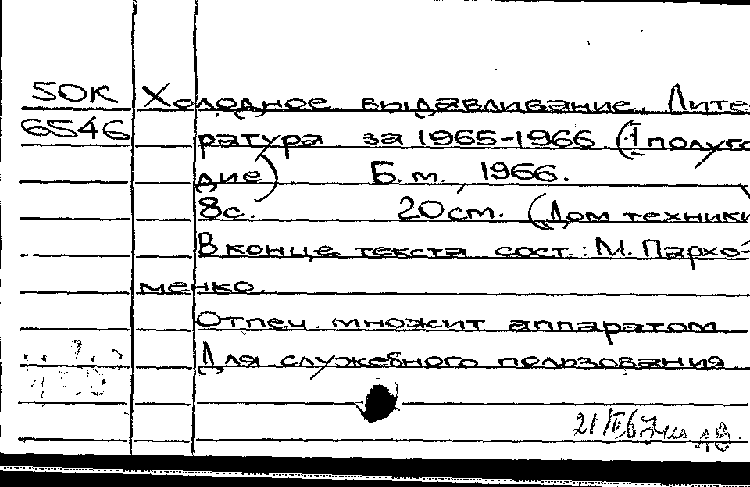 50К Холодное выдавливание. Лите-
6546 ратура за 1965-1966 (I полуго-
дие) Б.м., 1966.
8с. 20cm. (Дом техники
В конце текста сост.: М. Пархо-
менко.
Отпеч. множит аппаратом
Для служебного пользования